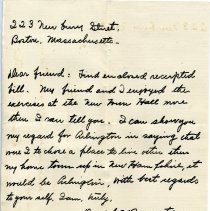 223 Newbury Street,
Boston, Massachusetts.
Dear friend: Find enclosed receipted
bill. My friend and I enjoyed the
exercises at the New Town Hall more
then I can tell you. I can show you
my regard for Arlington in saying that
were I to chose a place to live other then
my home town up in New Hampshire, it
would be Arlington, with best regards
to your self, I am, truly,